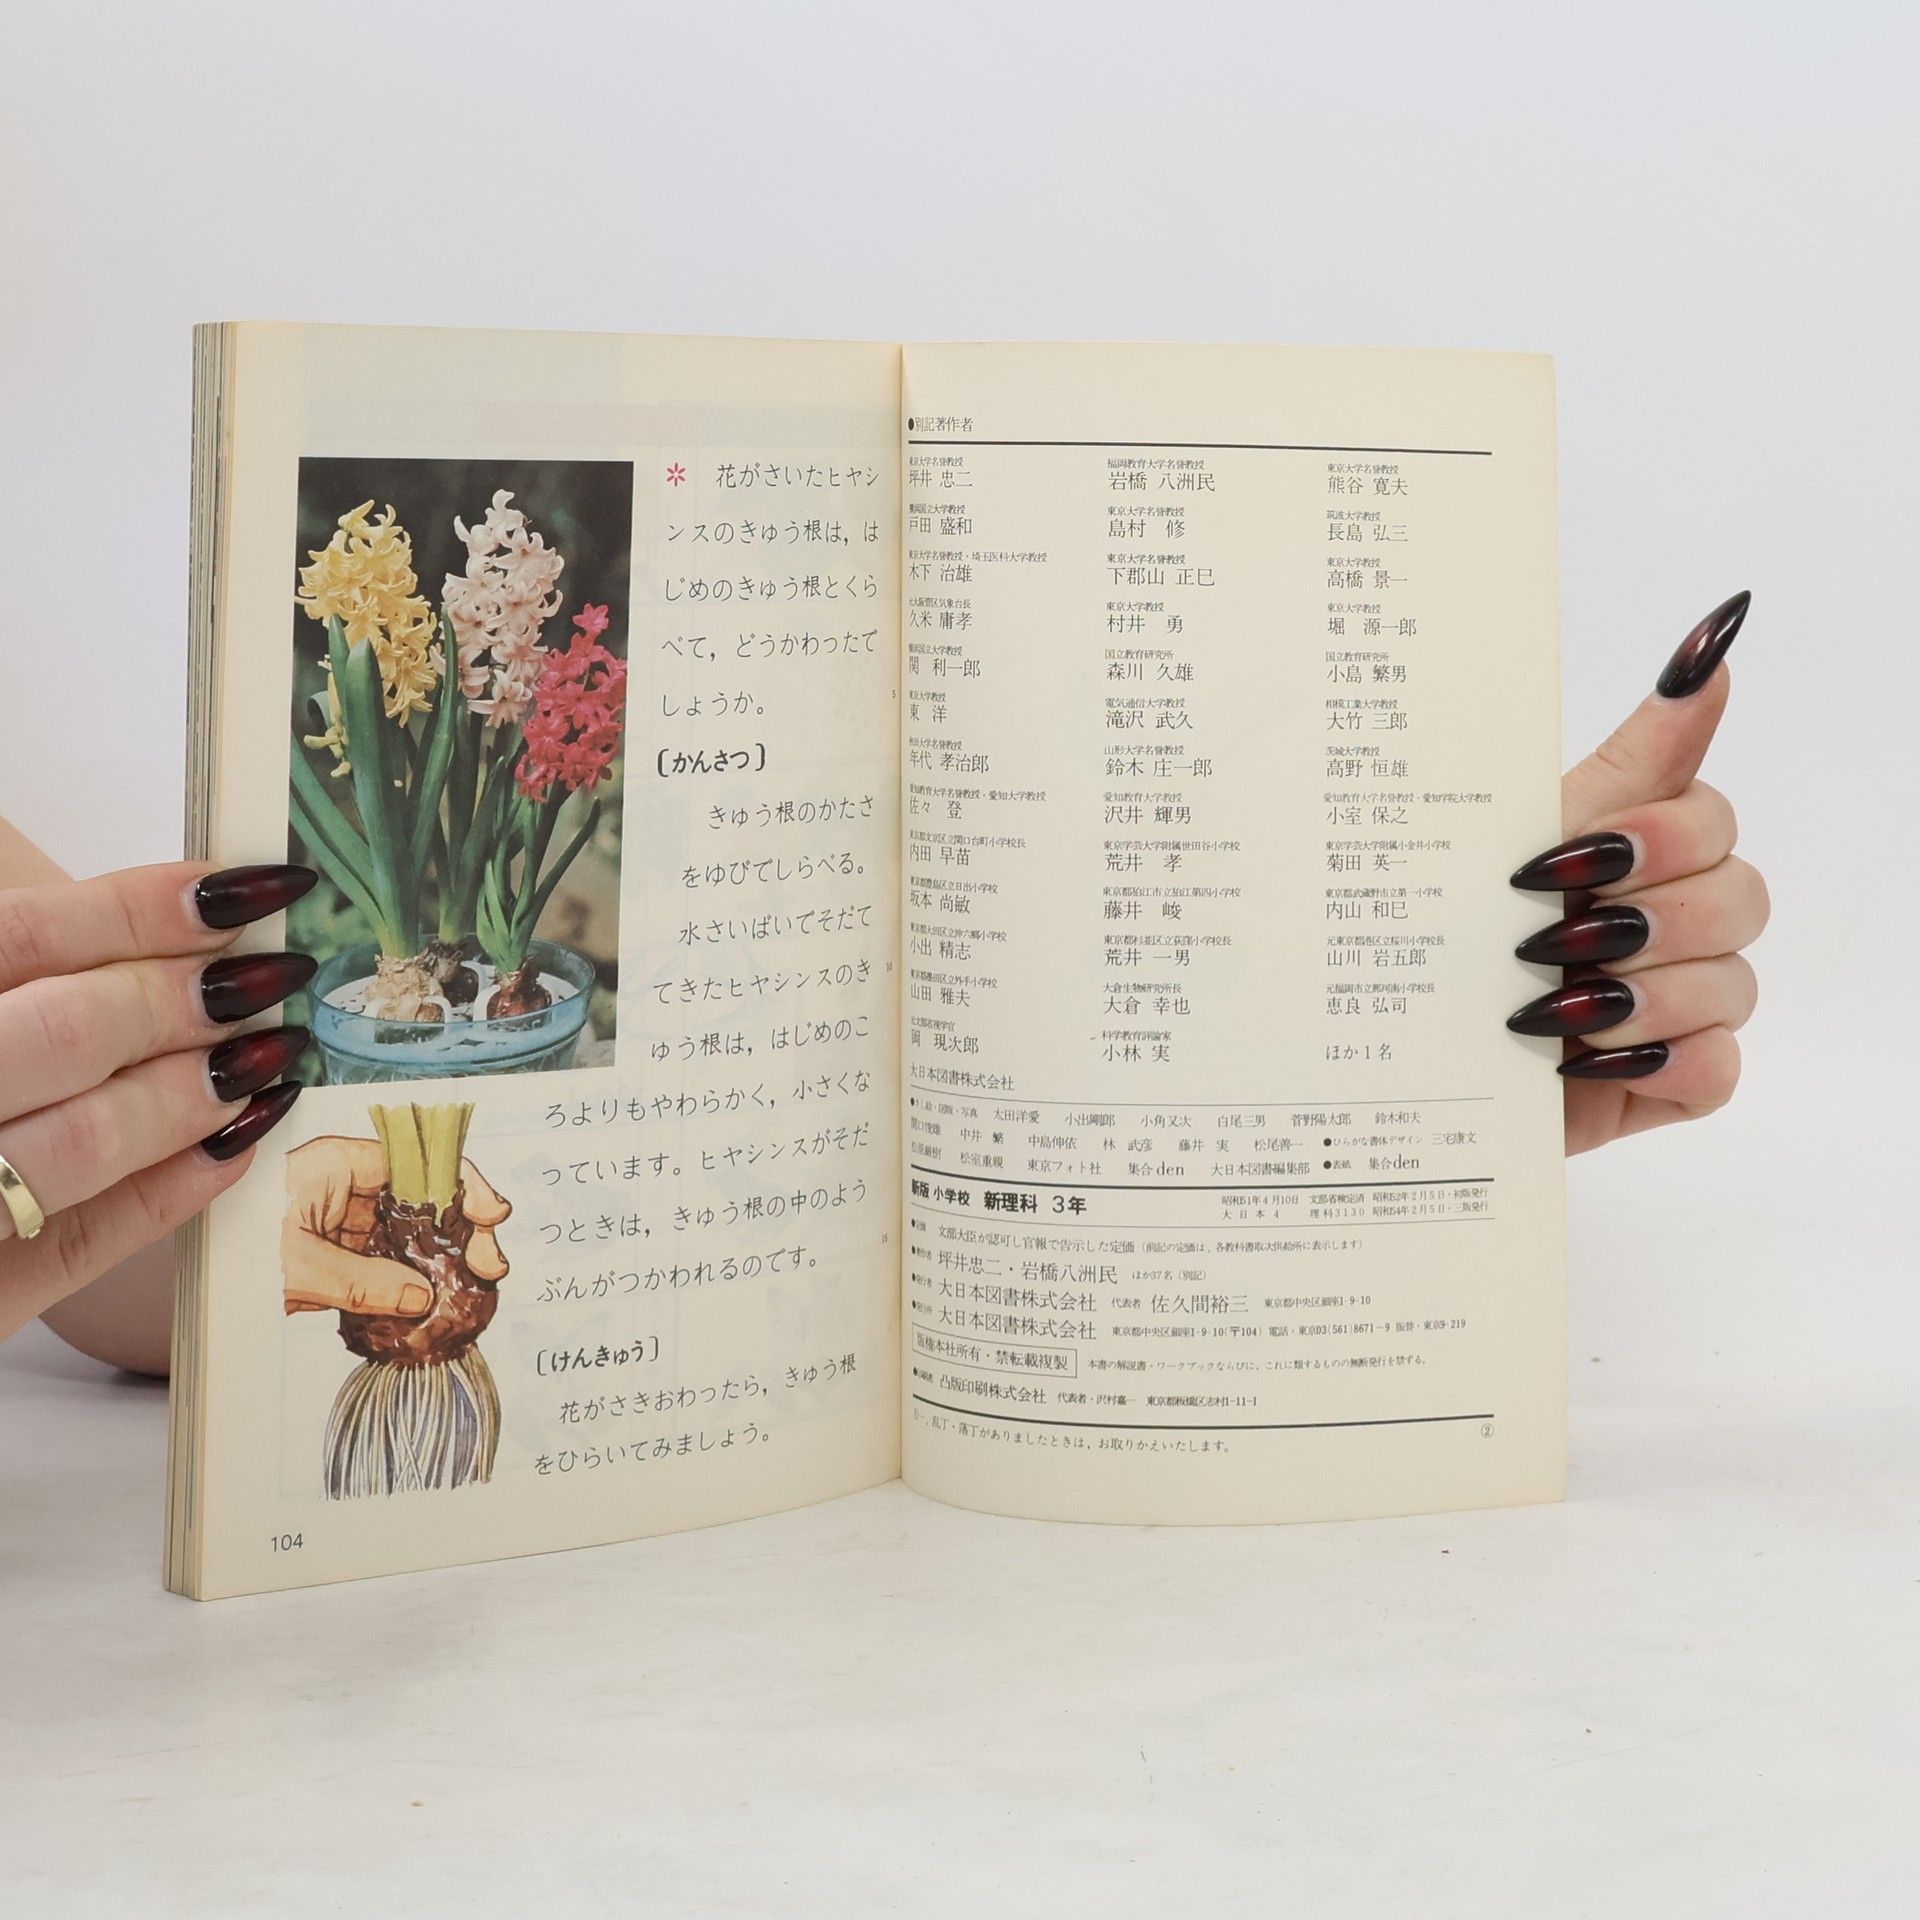 ＊ 花がさいたヒヤシ
ンスのきゅう根は，は
じめのきゅう根とくら
べて，どうかわったで
しょうか。
5
〔かんさつ〕
きゅう根のかたさ
をゆびでしらべる。
水さいばいでそだて
てきたヒヤシンスのき
10
ゅう根は，はじめのこ
ろよりもやわらかく，小さくな
っています。ヒヤシンスがそだ
つときは，きゅう根の中のよう
15
ぶんがつかわれるのです。
〔けんきゅう〕
花がさきおわったら，きゅう根
をひらいてみましょう。
104
●別記著作者
東京大学名誉教授 福岡教育大学名誉教授 東京大学名誉教授
坪井 忠二 岩橋 八洲民 熊谷 寛夫
横浜国立大学教授 東京大学名誉教授 筑波大学教授
戸田 盛和 島村 修 長島 弘三
東京大学名誉教授・埼玉医科大学教授 東京大学名誉教授 東京大学教授
木下 治雄 下郡山 正巳 高橋 景一
元大阪管区気象台長 東京大学教授 東京大学教授
久米 庸孝 村井 勇 堀 源一郎
横浜国立大学教授 国立教育研究所 国立教育研究所
関 利一郎 森川 久雄 小島 繁男
東京大学教授 電気通信大学教授 相模工業大学教授
東 洋 滝沢 武久 大竹 三郎
秋田大学名誉教授 山形大学名誉教授 茨城大学教授
年代 孝治郎 鈴木 庄一郎 高野 恒雄
愛知教育大学名誉教授・愛知大学教授 愛知教育大学教授 愛知教育大学名誉教授・愛知学院大学教授
佐々 登 沢井 輝男 小室 保之
東京都文京区立関口台町小学校長 東京学芸大学附属世田谷小学校 東京学芸大学附属小金井小学校
内田 早苗 荒井 孝 菊田 英一
東京都豊島区立日出小学校 東京都狛江市立狛江第四小学校 東京都武蔵野市立第一小学校
坂本 尚敏 藤井 峻 内山 和巳
東京都大田区立仲六郷小学校 東京都杉並区立荻窪小学校長 元東京都港区立桜川小学校長
小出 精志 荒井 一男 山川 岩五郎
東京都墨田区立外手小学校 大倉生物研究所長 元福岡市立那珂南小学校長
山田 雅夫 大倉 幸也 恵良 弘司
元文部省視学官 科学教育評論家
岡 現次郎 小林 実 ほか1名
大日本図書株式会社
●さし絵・図版・写真 太田洋愛 小出剛郎 小角又次 白尾三男 菅野陽太郎 鈴木和夫
関口俊雄 中井 繁 中島伸依 林 武彦 藤井 実 松尾善一 ●ひらがな書体デザイン 三宅康文
松原巌樹 松室重親 東京フォト社 集合den 大日本図書編集部 ●表紙 集合den
新版 小学校 新理科 3年 昭和51年4月10日 文部省検定済 昭和52年2月5日・初版発行
大日本 4 理科3130 昭和54年2月5日・三版発行
●定価 文部大臣が認可し官報で告示した定価（前記の定価は，各教科書取次供給所に表示します）
●著作者 坪井忠二・岩橋八洲民 ほか37名（別記）
●発行者 大日本図書株式会社 代表者 佐久間裕三 東京都中央区銀座1-9-10
●発行所 大日本図書株式会社 東京都中央区銀座1-9-10(〒104) 電話・東京03(561)8671-9 振替・東京9-219
版権本社所有・禁転載複製 本書の解説書・ワークブックならびに，これに類するものの無断発行を禁ずる。
●印刷者 凸版印刷株式会社 代表者・沢村嘉一 東京都板橋区志村1-11-1
万一，乱丁・落丁がありましたときは，お取りかえいたします。 ②